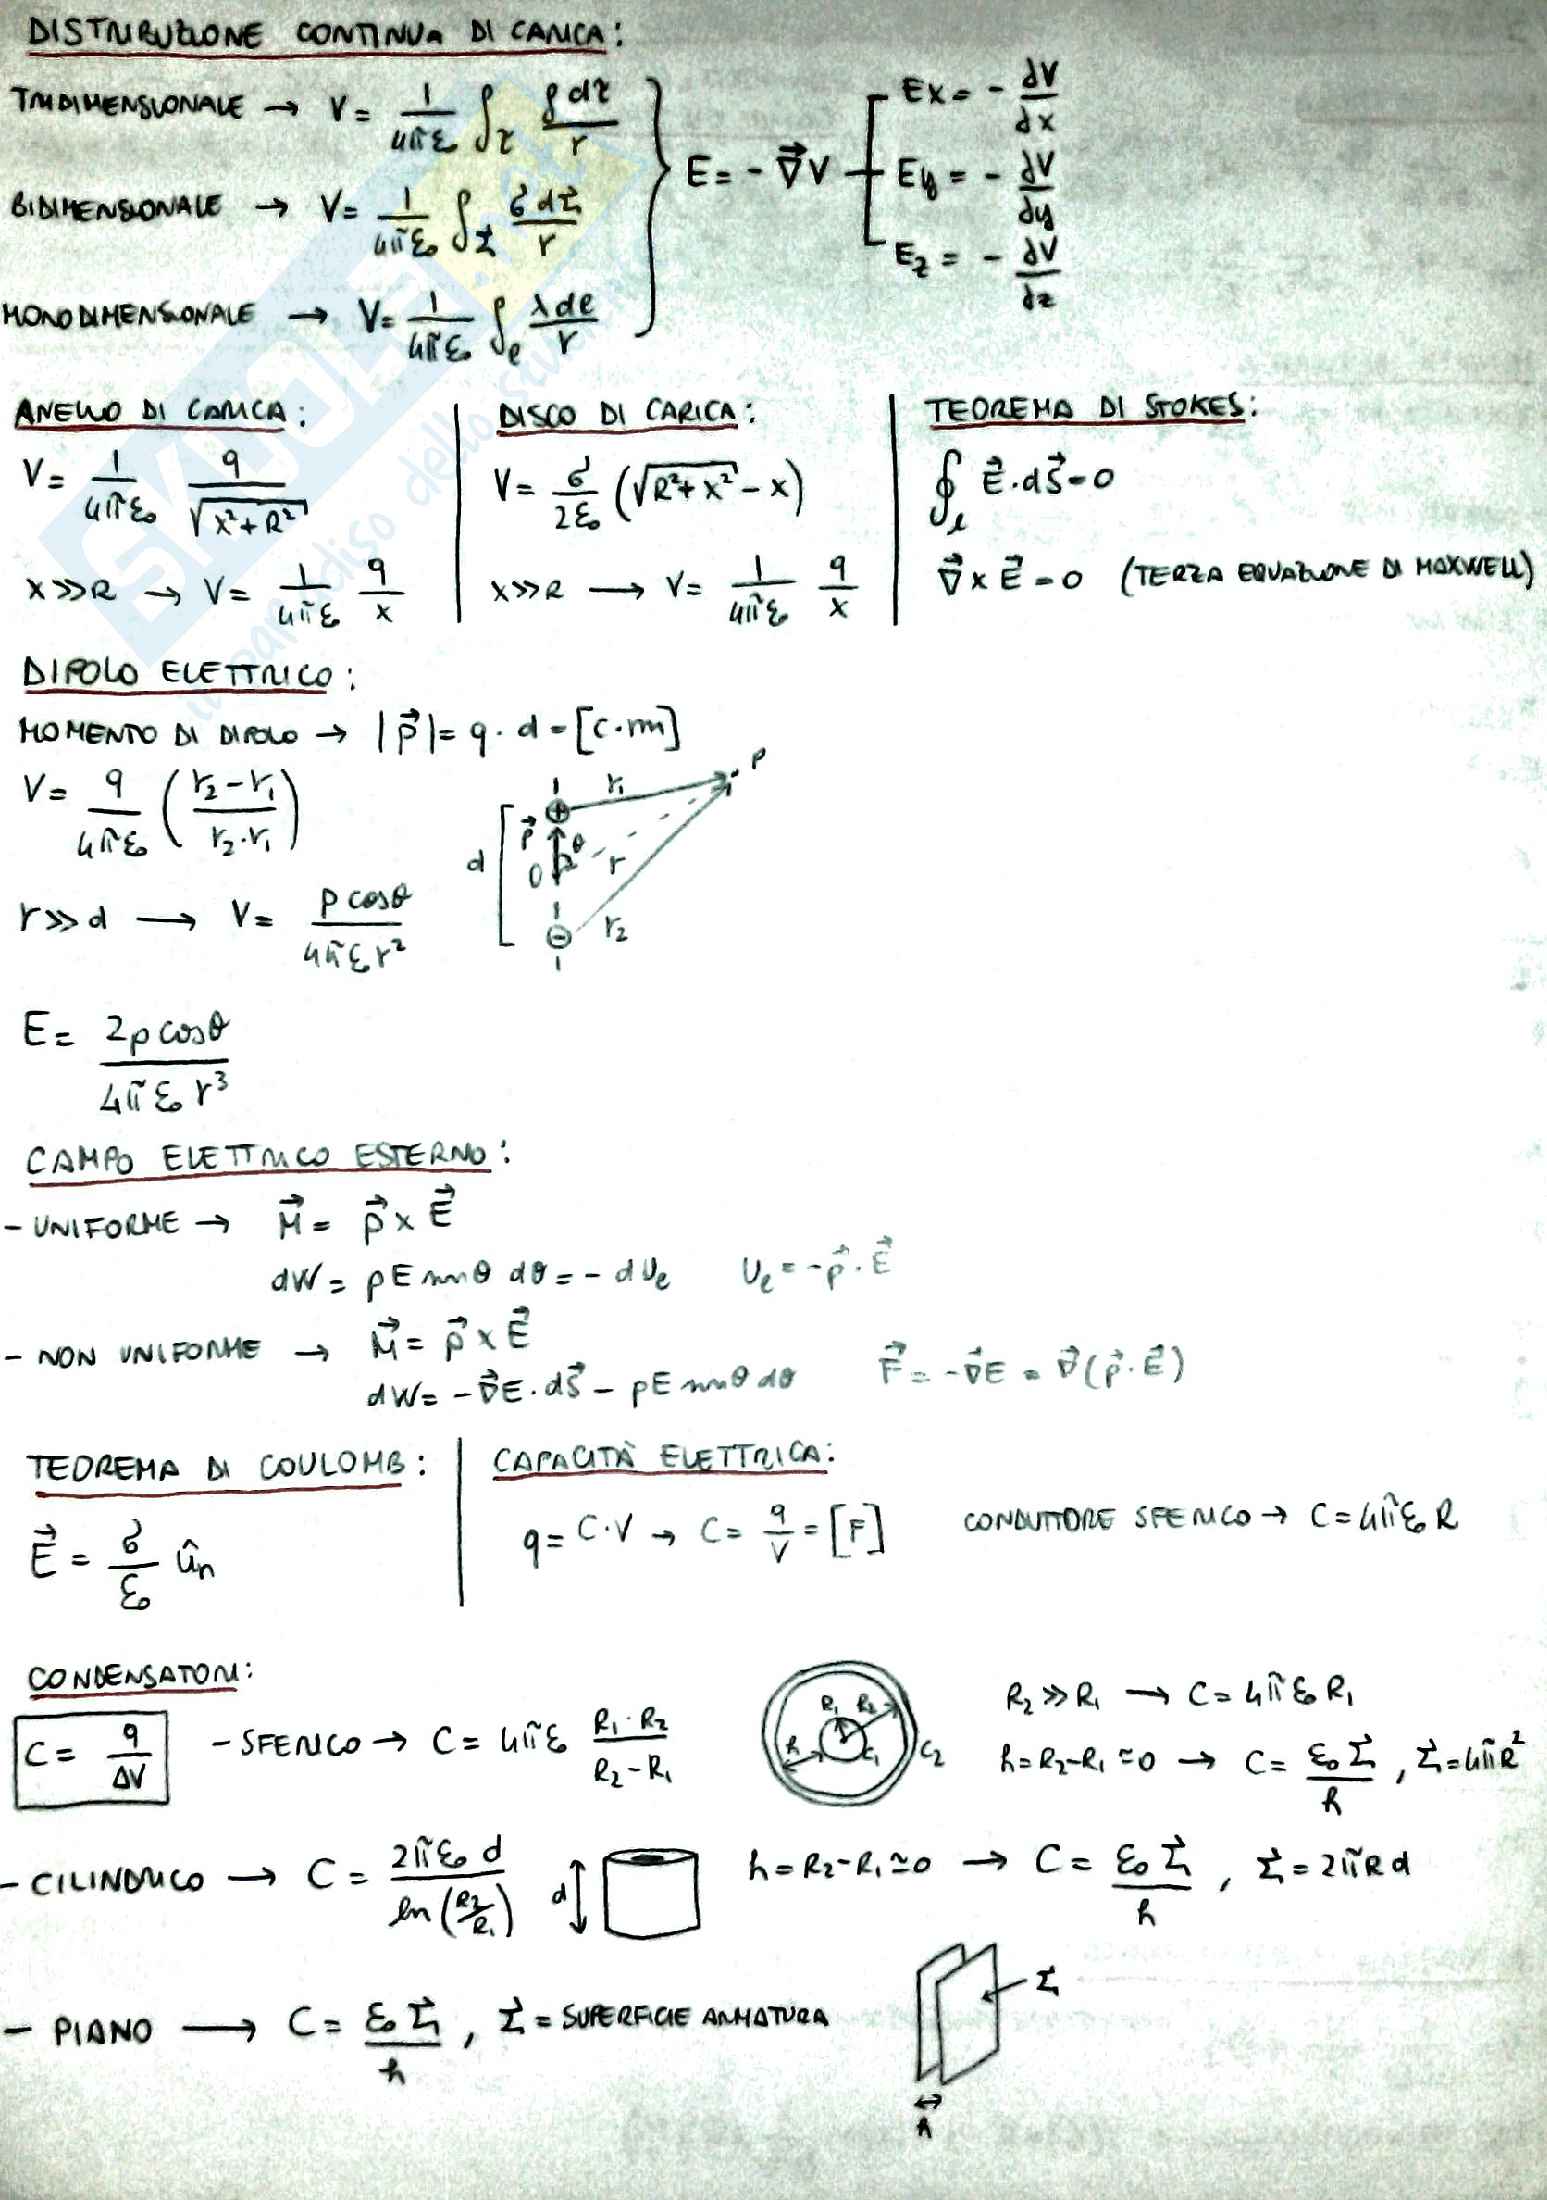 DISTRIBUZIONE CONTINUA DI CARICA:
TRIDIMENSIONALE → V = 1/4πε₀ ∫τ ρdτ/r
BIDIMENSIONALE → V = 1/4πε₀ ∫Σ σdΣ/r
MONODIMENSIONALE → V = 1/4πε₀ ∫ℓ λdℓ/r
E = -∇⃗V
Ex = - ∂V/∂x
Ey = - ∂V/∂y
Ez = - ∂V/∂z
ANELLO DI CARICA:
V = 1/4πε₀ q/√(x²+R²)
x>>R → V = 1/4πε₀ q/x
DISCO DI CARICA:
V = σ/2ε₀ (√(R²+x²) - x)
x>>R → V = 1/4πε₀ q/x
TEOREMA DI STOKES:
∮ℓ E⃗·dS⃗ = 0
∇⃗ × E⃗ = 0 (TERZA EQUAZIONE DI MAXWELL)
DIPOLO ELETTRICO:
MOMENTO DI DIPOLO → |P⃗| = q · d = [C·m]
V = q/4πε₀ (r₂-r₁/r₂·r₁)
r>>d → V = p cosθ/4πε₀r²
d p⃗ O θ r₁ r r₂ P + -
E = 2p cosθ/4πε₀r³
CAMPO ELETTRICO ESTERNO:
- UNIFORME → M⃗ = p⃗ × E⃗
dW = pE sinθ dθ = - dUe Ue = -p⃗·E⃗
- NON UNIFORME → M⃗ = p⃗ × E⃗
dW = -∇⃗E·dS⃗ - pE sinθ dθ F⃗ = -∇⃗E = ∇⃗(p⃗·E⃗)
TEOREMA DI COULOMB:
E⃗ = σ/ε₀ ûn
CAPACITÀ ELETTRICA:
q = C·V → C = q/V = [F] CONDUTTORE SFERICO → C = 4πε₀R
CONDENSATORI:
C = q/ΔV
- SFERICO → C = 4πε₀ R₁·R₂/R₂-R₁
R₁ R₂ h C₁ C₂
R₂>>R₁ → C = 4πε₀R₁
h = R₂-R₁ ≃ 0 → C = ε₀Σ/h, Σ = 4πR²
- CILINDRICO → C = 2πε₀d/ln(R₂/R₁) d h = R₂-R₁ ≃ 0 → C = ε₀Σ/h, Σ = 2πRd
- PIANO → C = ε₀Σ/h, Σ = SUPERFICIE ARMATURA
Σ
h
SKUOLA.net
il paradiso dello studente